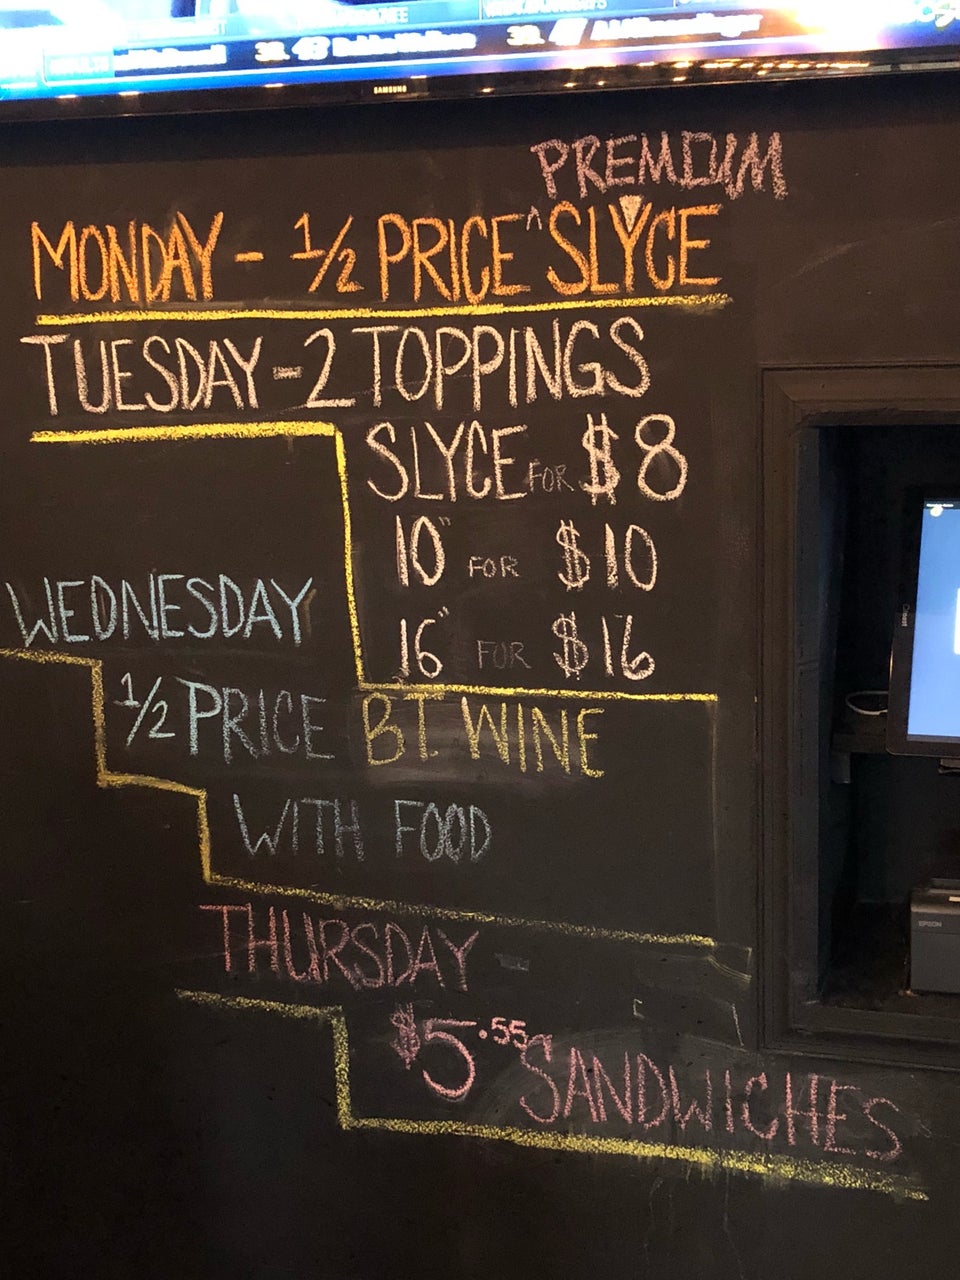 SAMSUNG
PREMIUM
MONDAY - 1/2 PRICE ^ SLYCE
TUESDAY - 2 TOPPINGS
SLYCE FOR $8
10" FOR $10
16" FOR $16
WEDNESDAY
1/2 PRICE BT. WINE
WITH FOOD
THURSDAY
$5.55 SANDWICHES
EPSON